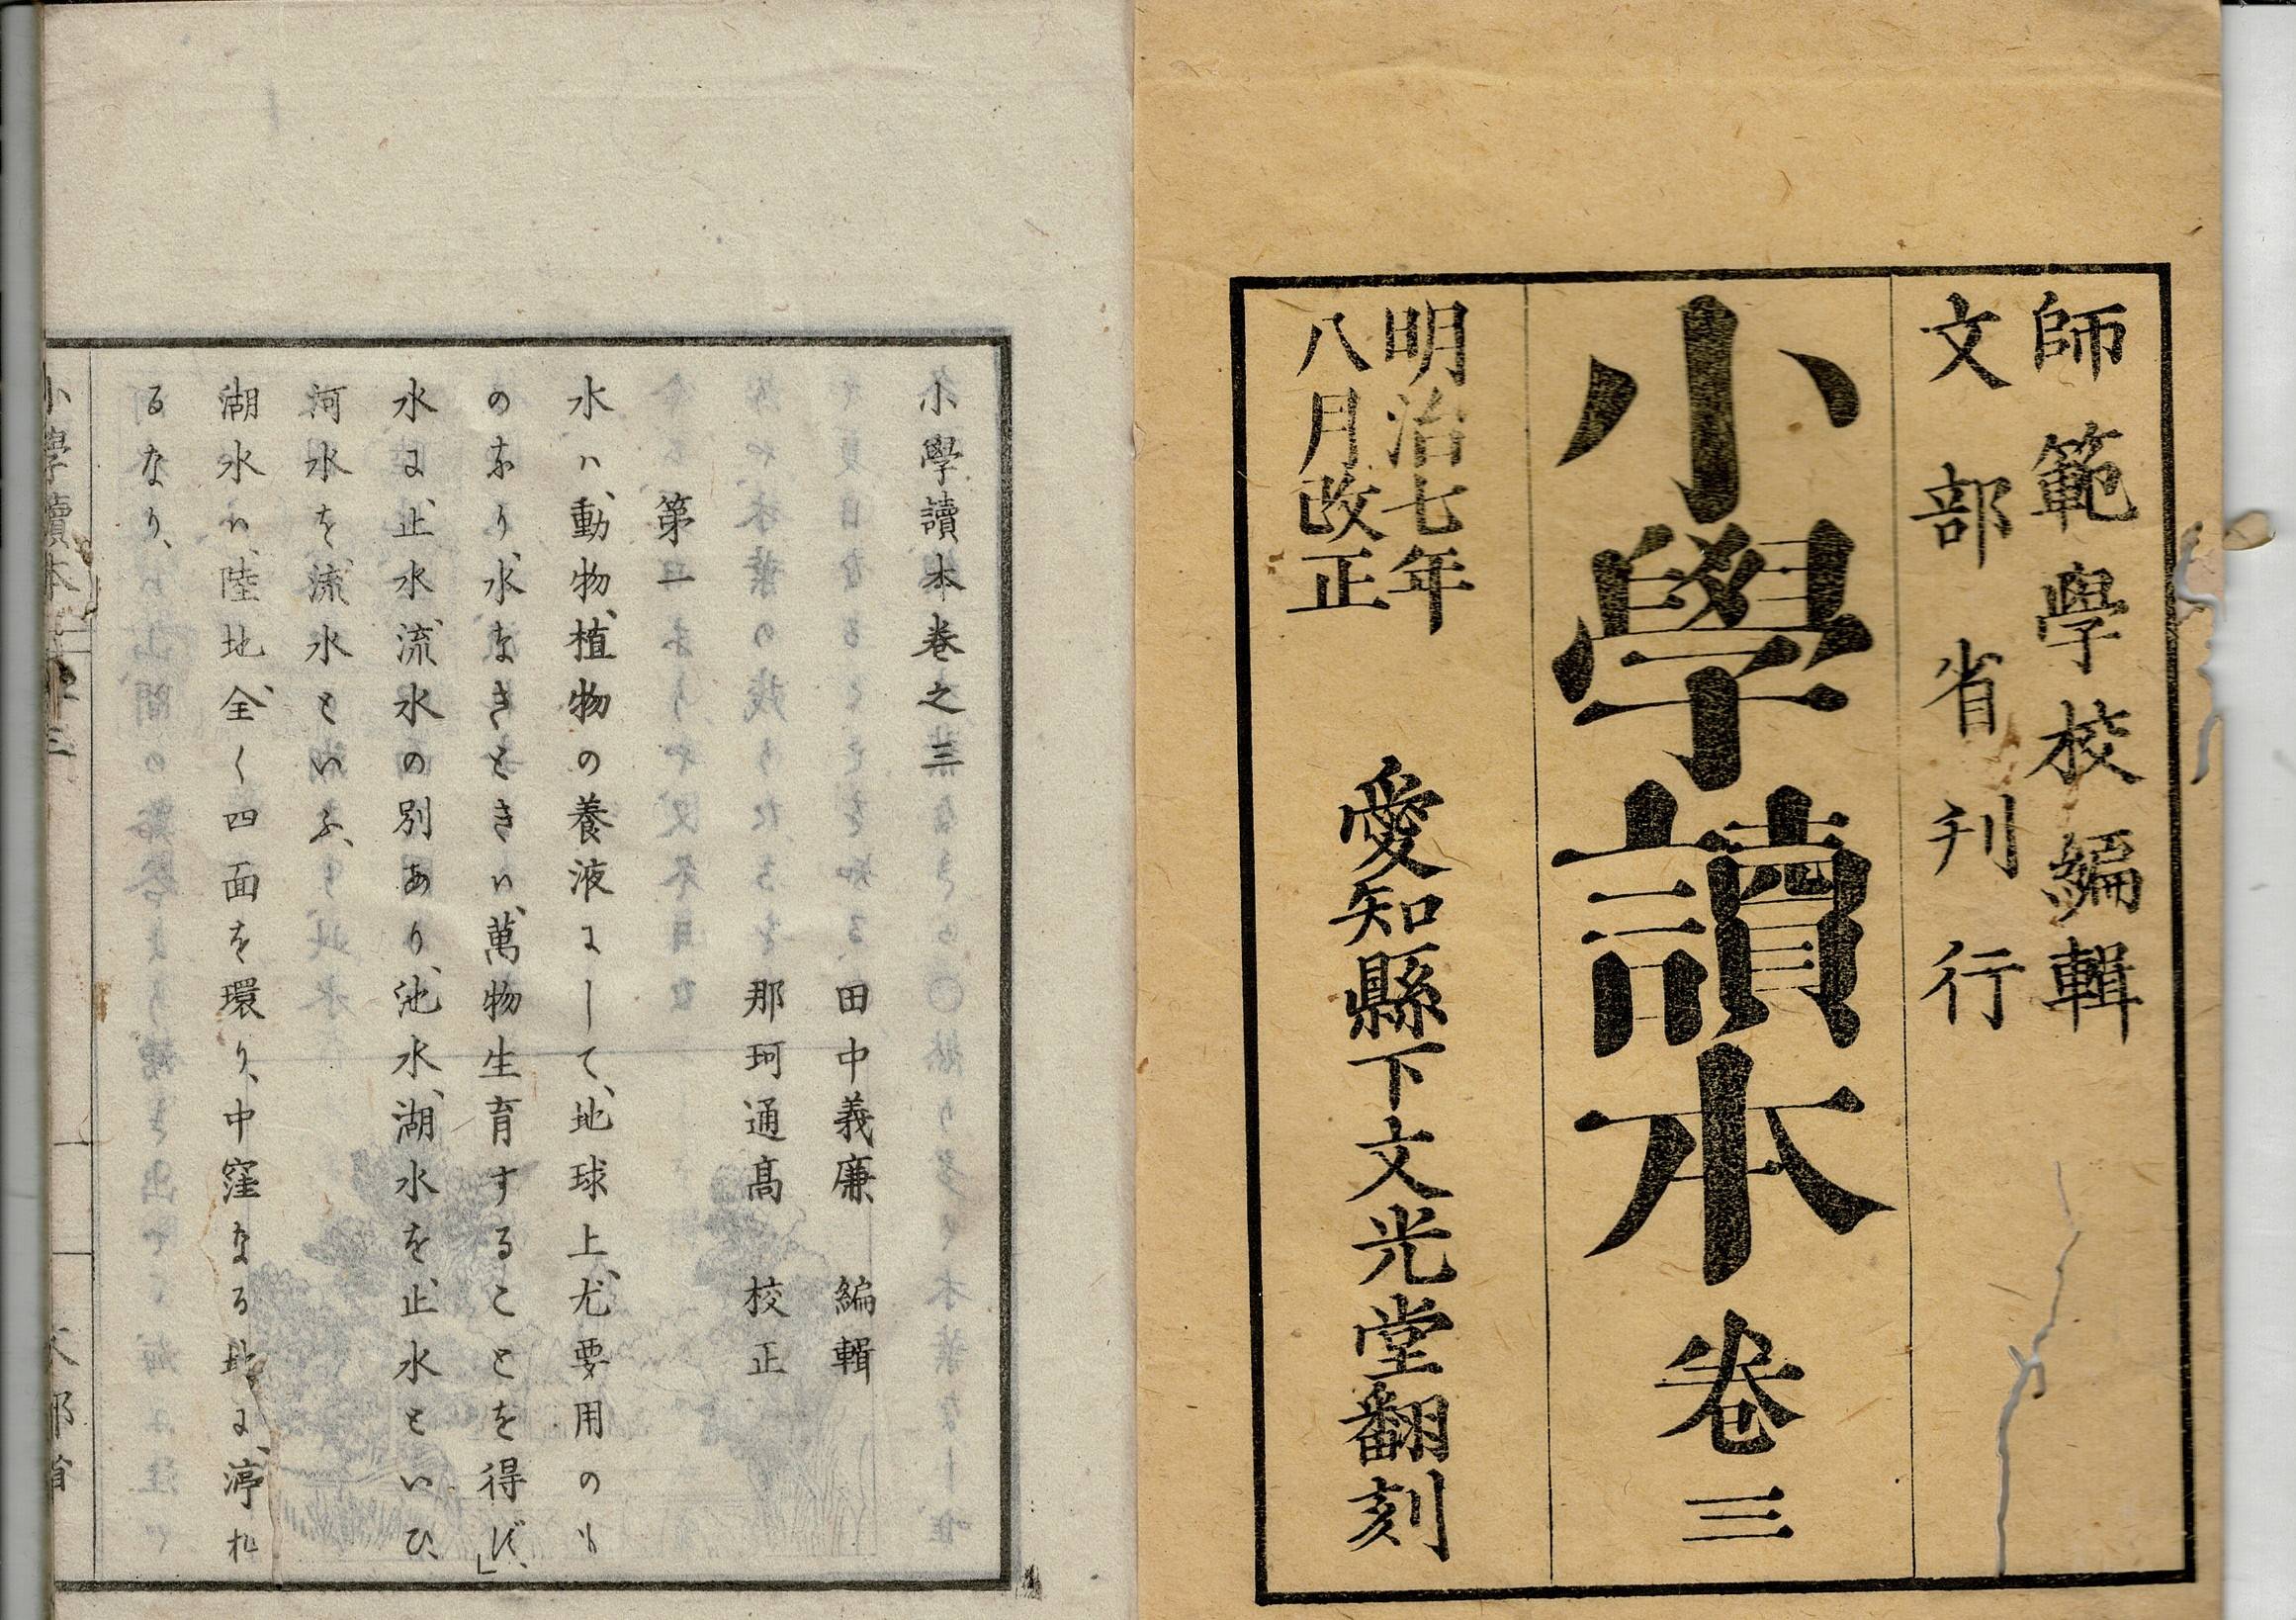 師範學校編輯
文部省刊行
小學讀本 卷三
明治七年
八月改正
愛知縣下文光堂翻刻
小學讀本卷之三
田中義廉 編輯
那珂通高 校正
第一
水ハ、動物、植物の養液にして、地球上、尤要用のも
のあり、水なきときハ、萬物生育することを得ず、」
水に、止水、流水の別あり、池水、湖水を、止水といひ、
河水を、流水といふ、
湖水ハ、陸地、全く四面を環り、中窪なる地に、渟れ
るなり、
小學讀本 三
一
文部省